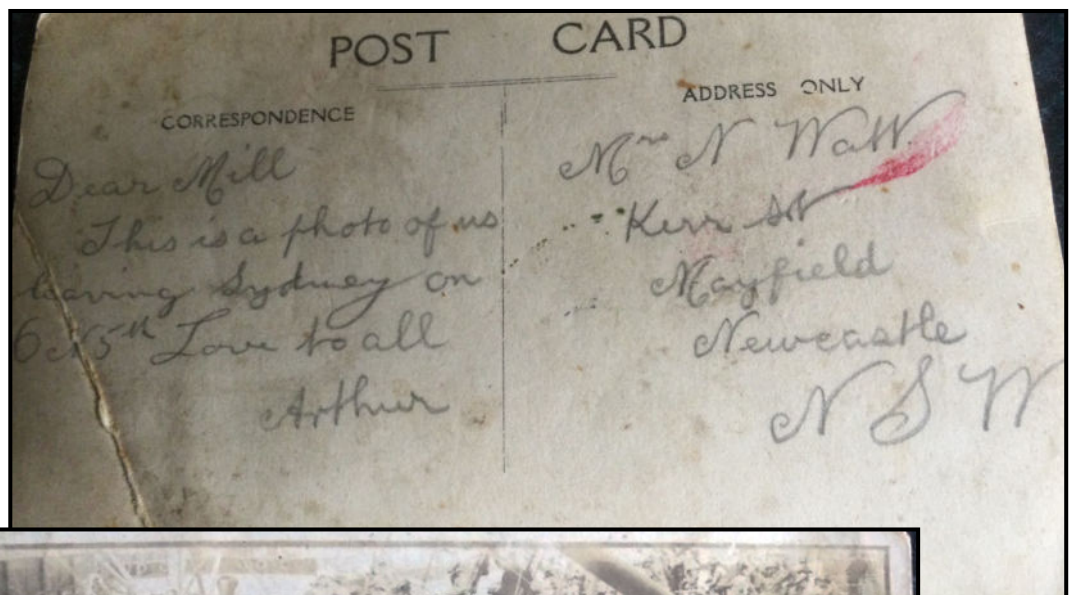 POST CARD
CORRESPONDENCE
ADDRESS ONLY
Dear Mill
This is a photo of us
leaving Sydney on
5th Love to all
Arthur
Mrs N Watt
Kerr St
Mayfield
Newcastle
N S W